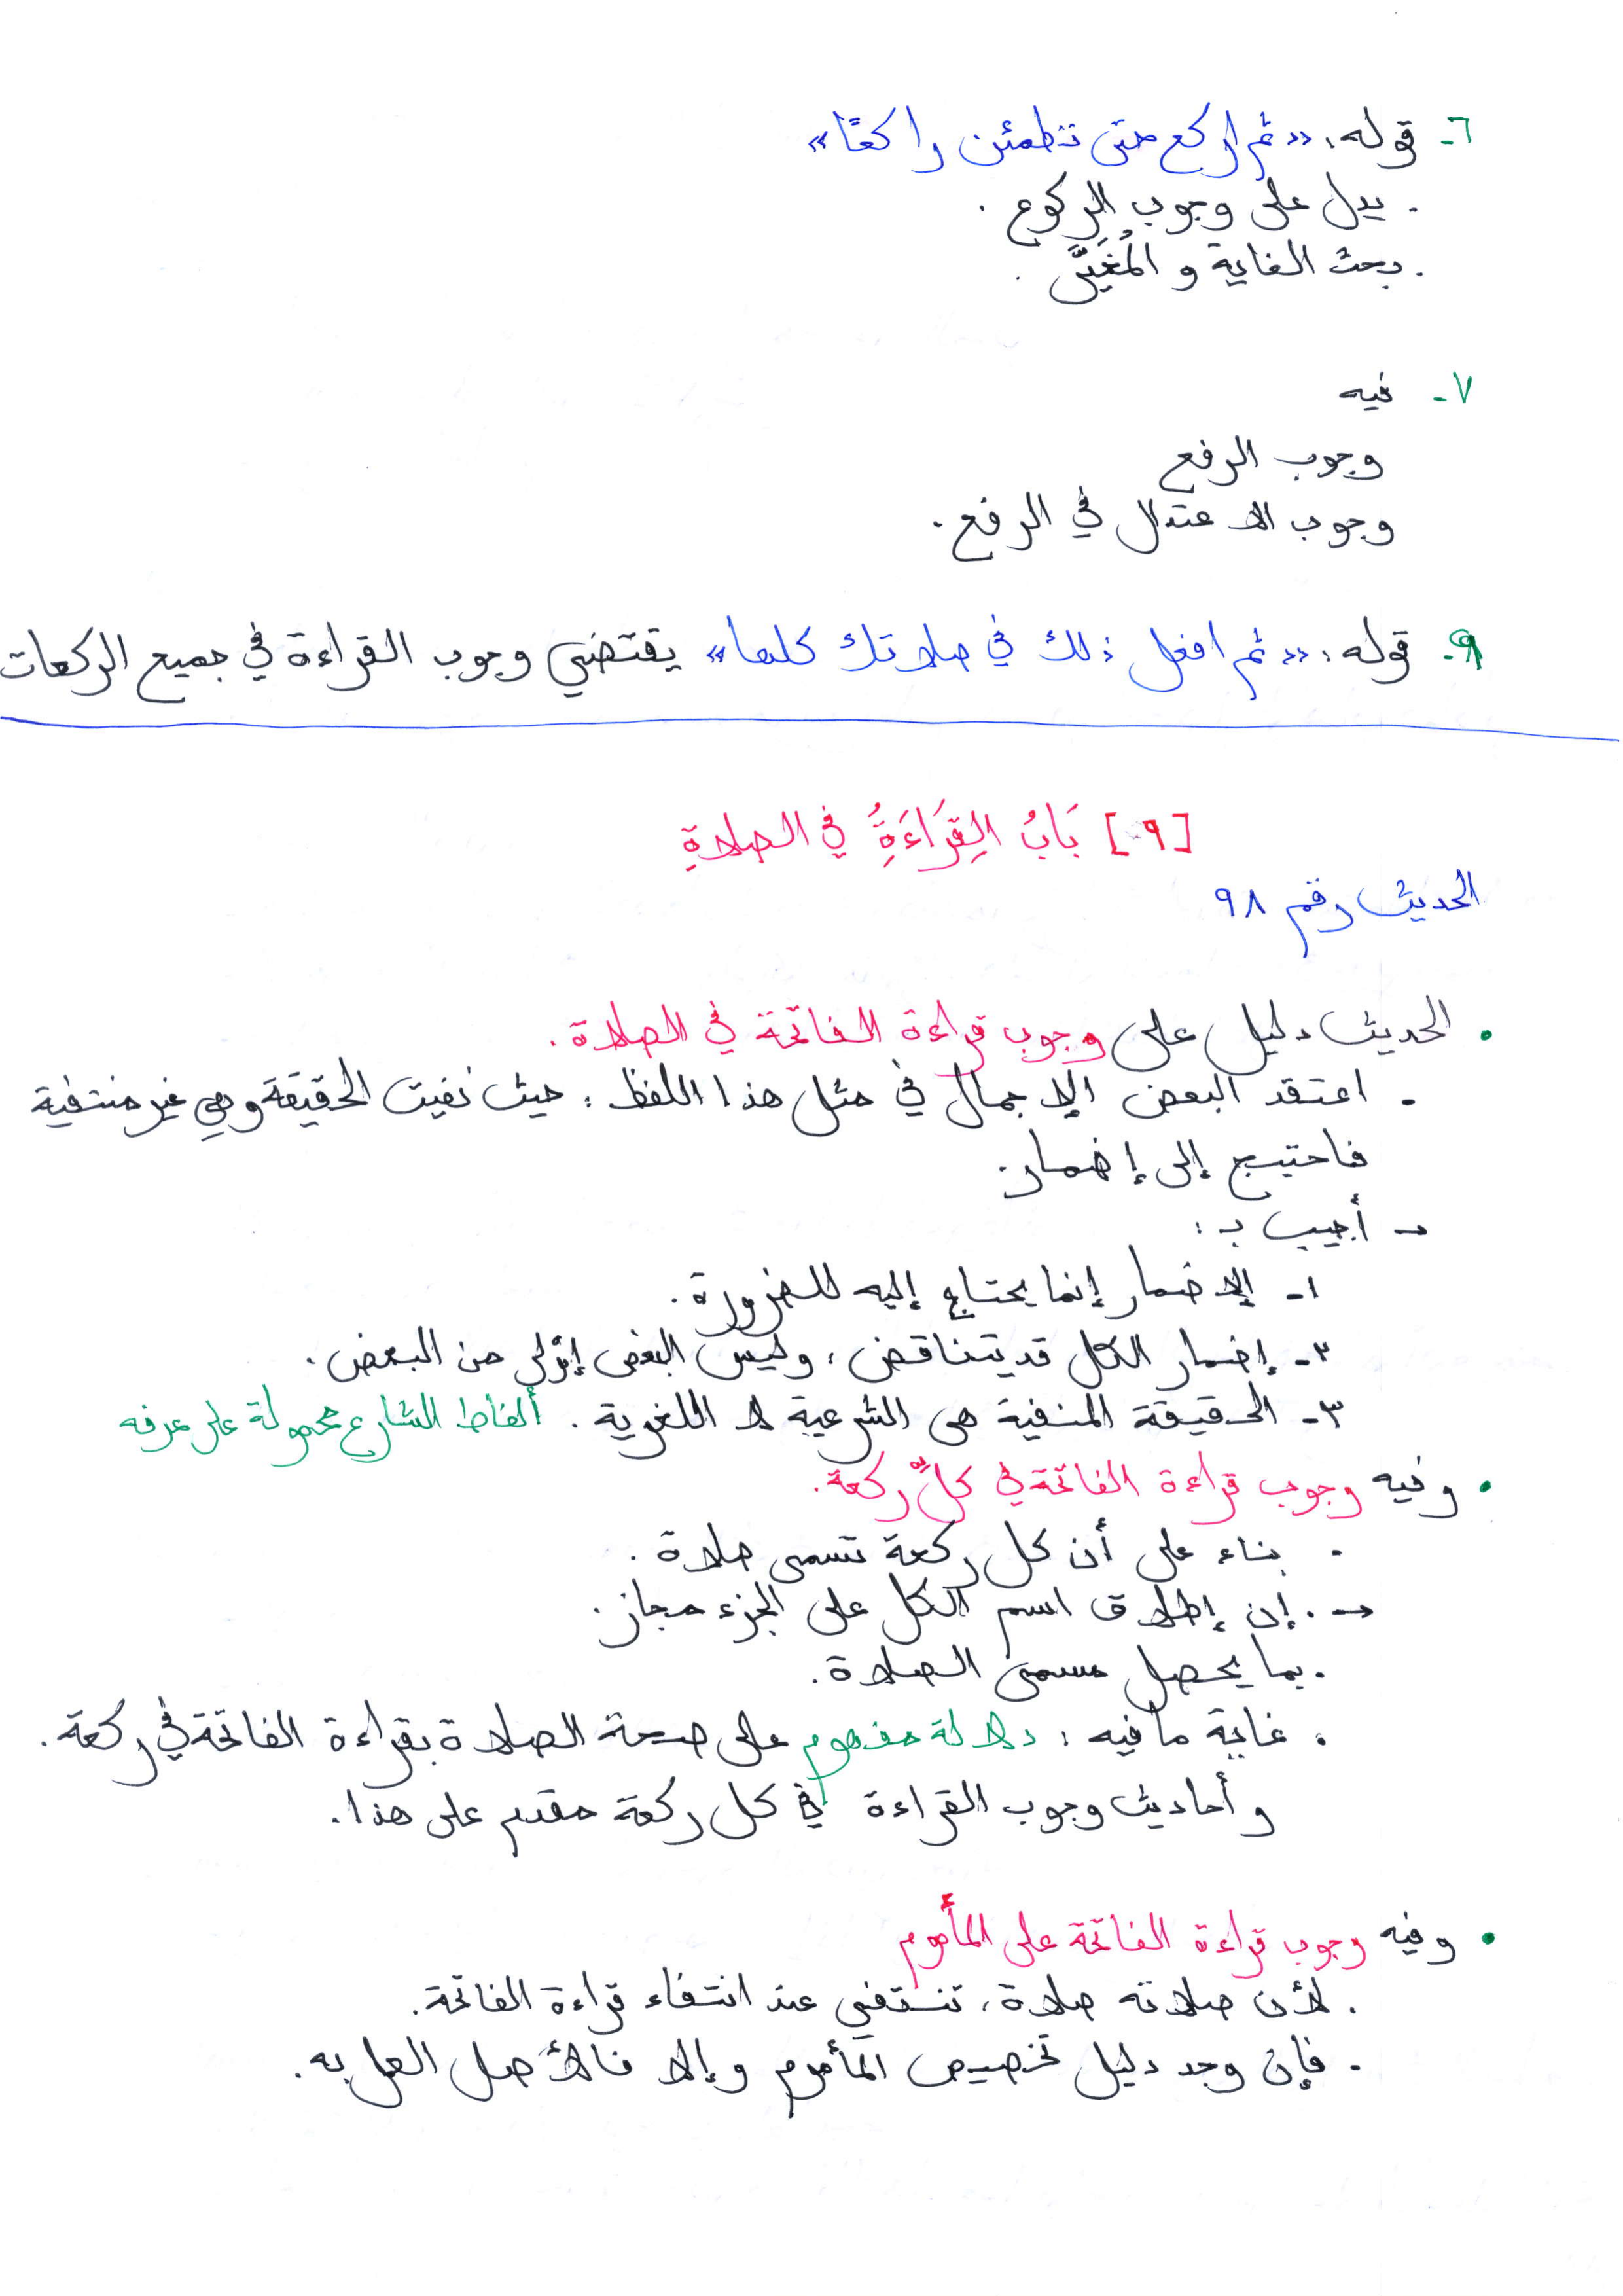 ٦- قوله: «ثم اركع حتى تطمئن راكعًا»
. يدل على وجوب الركوع .
. بحث الغاية و المُغَيَّى .
٧- فيه
وجوب الرفع
وجوب الاعتدال في الرفع .
٩- قوله: «ثم افعل ذلك في صلاتك كلها» يقتضي وجوب القراءة في جميع الركعات
[٩] بَابُ القِرَاءَةِ في الصلاةِ
الحديث رقم ٩٨
• الحديث دليل على وجوب قراءة الفاتحة في الصلاة .
- اعتقد البعض الإجمال في مثل هذا اللفظ : حيث نفيت الحقيقة وهي غير منتفية
فاحتيج إلى إضمار .
→ أجيب بـ :
١- الإضمار إنما يحتاج إليه للضرورة .
٢- إضمار الكل قد يتناقض ، وليس البعض أولى من البعض .
٣- الحقيقة المنفية هي الشرعية لا اللغوية . ألفاظ الشارع محمولة على عرفه
• وفيه وجوب قراءة الفاتحة في كلِّ ركعة .
. بناء على أن كل ركعة تسمى صلاة .
→ . إن إطلاق اسم الكل على الجزء مجاز .
. بما يحصل مسمى الصلاة .
. غاية ما فيه : دلالة مفهوم على صحة الصلاة بقراءة الفاتحة في ركعة .
وأحاديث وجوب القراءة في كل ركعة مقدم على هذا .
• وفيه وجوب قراءة الفاتحة على المأموم
. لأن صلاته صلاة ، تنتفي عند انتفاء قراءة الفاتحة .
. فإن وجد دليل تخصيص المأموم وإلا فالأصل العمل به .